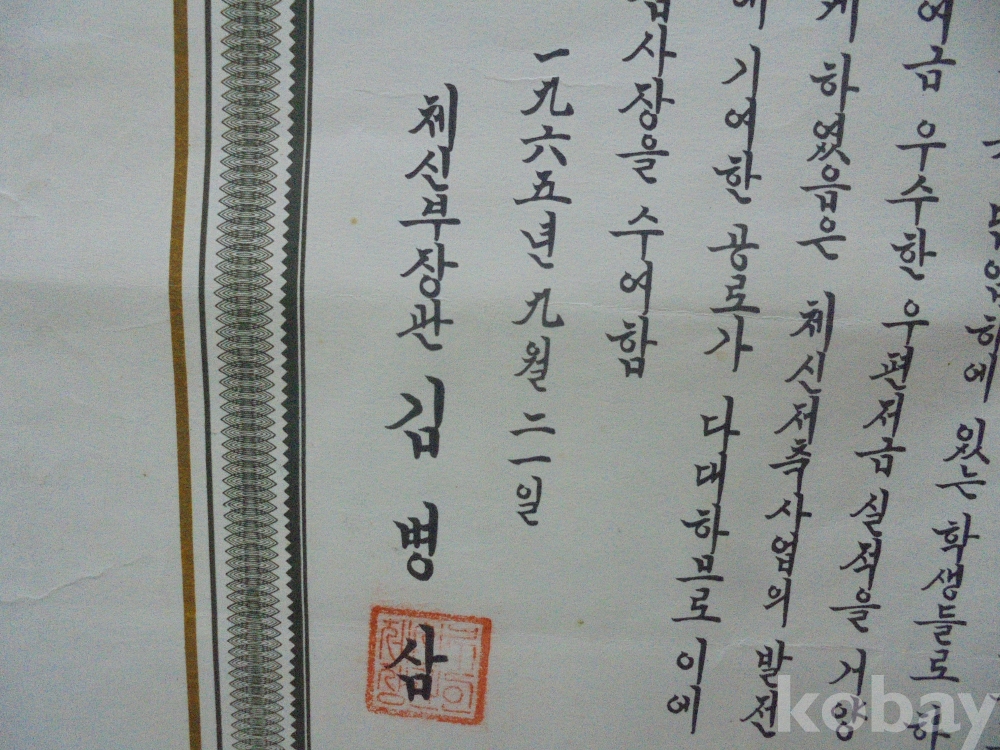 담임하에 있는 학생들로 하
여금 우수한 우편저금 실적을 거양
게 하였음은 체신저축사업의 발전
에 기여한 공로가 다대하므로 이에
감사장을 수여함
一九六五년 九월 二一일
체신부장관 김병삼
kobay